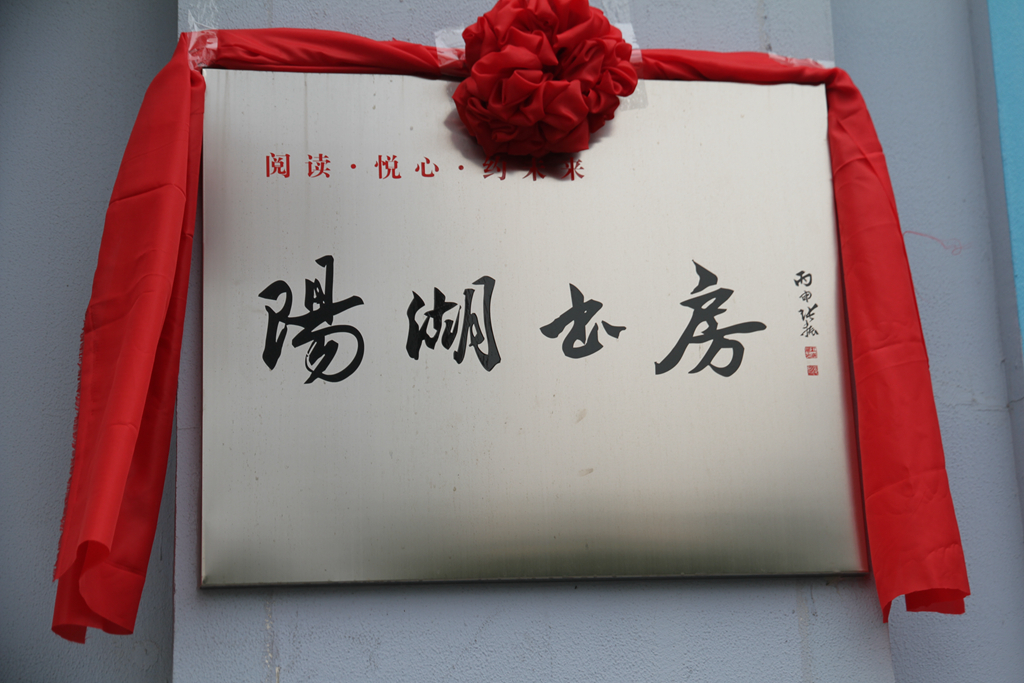 阅读·悦心·约未来
陽湖书房
丙申